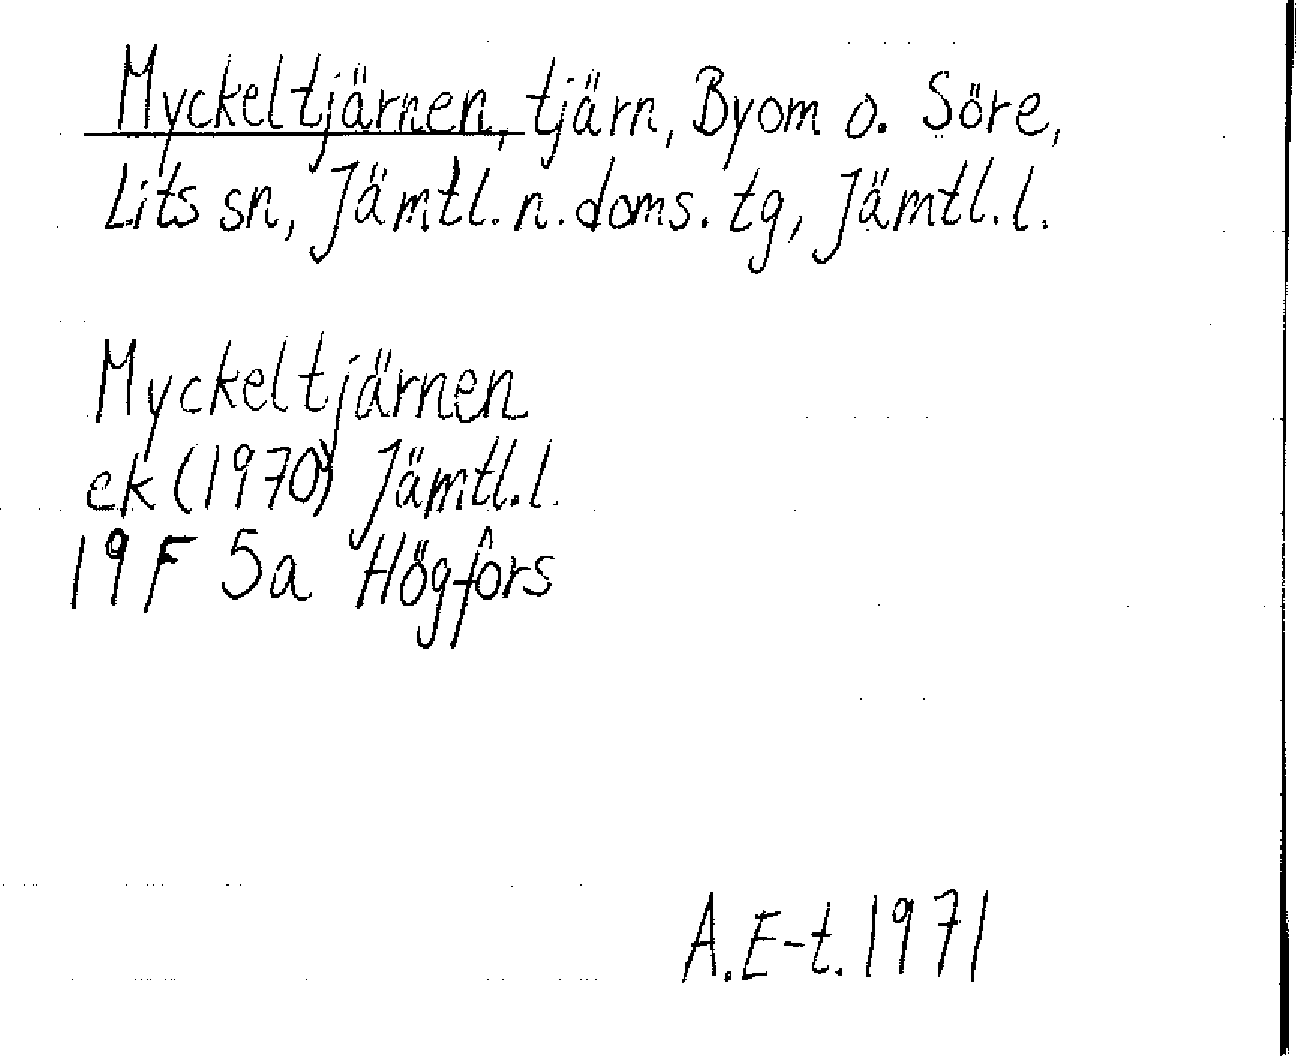 Myckeltjärnen, tjärn, Byom o. Söre,
Lits sn, Jämtl. n. doms. tg, Jämtl. l.
Myckeltjärnen
ek (1970) Jämtl. l.
19F 5a Högfors
A. E-t. 1971